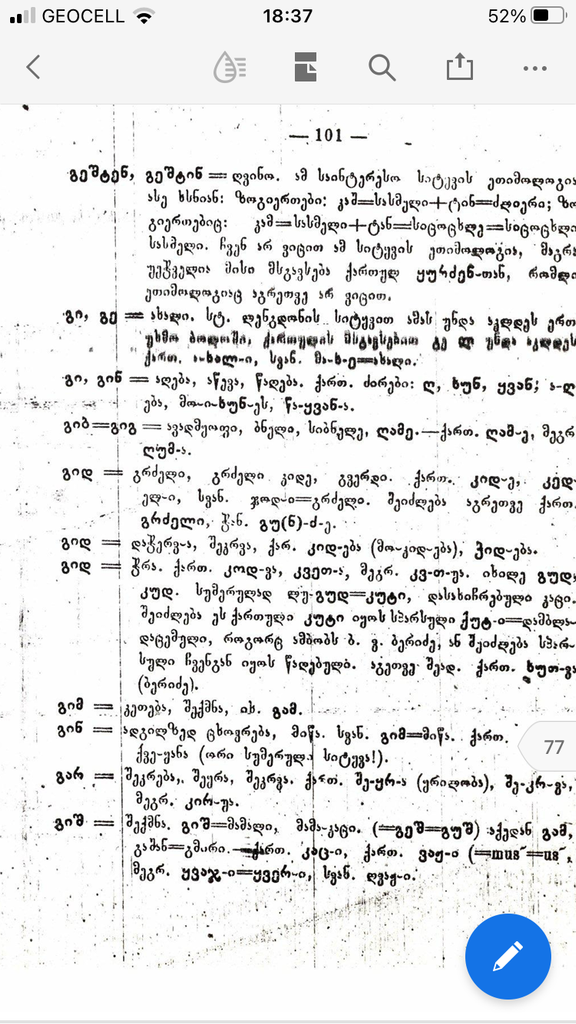 GEOCELL 18:37 52%
— 101 —
გეშტენ, გეშტინ = ღვინო. ამ საინტერესო სიტყვის ეთიმოლოგია
ასე ხსნიან: ზოგიერთები: კაშ=სასმელი+ტინ=ძლიერი; ზო
გიერთებიც: კაშ=სასმელი+ტან=სიცოცხლე=სიცოცხლი
სასმელი. ჩვენ არ ვიცით ამ სიტყვის ეთიმოლოგია, მაგრა
უეჭველია მისი მსგავსება ქართულ ყურძენ-თან, რომლი
ეთიმოლოგიაც აგრეთვე არ ვიცით.
გი, გე = ახალი. სტ. ლენგდონის სიტყვით ამას უნდა აკლდეს ერთ
უხმო ბოლოში, ქართულის მსგავსებით კი ლ უნდა აკლდეს
ქართ. ა-ხალ-ი, სვან. მა-ხ-ე=ახალი.
გი, გინ = აღება, აწევა, წაღება. ქართ. ძირები: ღ, ხუნ, ყვან; ა-ღ
ება, მო-ი-ხუნ-ეს, წა-ყვან-ა.
გიბ=გიგ = ავადმყოფი, ბნელი, სიბნელე, ღამე.—ქართ. ღამ-ე, მეგრ
ღუმ-ა.
გიდ = გრძელი, გრძელი კიდე, გვერდი. ქართ. კიდ-ე, კედ
ელ-ი, სვან. ჯოდ-ი=გრძელი. შეიძლება აგრეთვე ქართ.
გრძელი, ჭან. გუ(ნ)-ძ-ე.
გიდ = დაჭერ-ა, შეკრვა, ქარ. კიდ-ება (მო-კიდ-ება), ჰიდ-ება.
გიდ = ჭრა. ქართ. კოდ-ვა, კვეთ-ა, მეგრ. კვ-თ-უა. იხილე გუდ
კუდ. სუმერულად ლუ-გუდ=კუტი, დასახიჩრებული კაცი.
შეიძლება ეს ქართული კუტი იყოს სპარსული ქუტ-ი=დამბლა-
დაცემული, როგორც ამბობს ბ. ვ. ბერიძე, ან შეიძლება სპარ-
სული ჩვენგან იყოს წაღებული. აგეთვე შეად. ქართ. ხუთ-ვა
(ბერიძე).
გიმ = კეთება, შექმნა, იხ. გამ.
გინ = ადგილზედ ცხოვრება, მიწა. სვან. გიმ=მიწა. ქართ.
ქვე-ყანა (ორი სუმერული სიტყვა!).
77
გარ = შეკრება, შეყრა, შეკრვა. ქართ. შე-ყრ-ა (ყრილობა), შე-კრ-ვა,
მეგრ. კირ-უა.
გიშ = შექმნა. გიშ=მამალი, მამა-კაცი. (=გეშ=გუშ) აქედან გამ,
გაშან=გმირი.—ქართ. კაც-ი, ქართ. ვაჟ-ი (=mus´=us´,
მეგრ. ყვაჯ-ი=ყვერ-ი, სვან. ღვაჟ-ი.